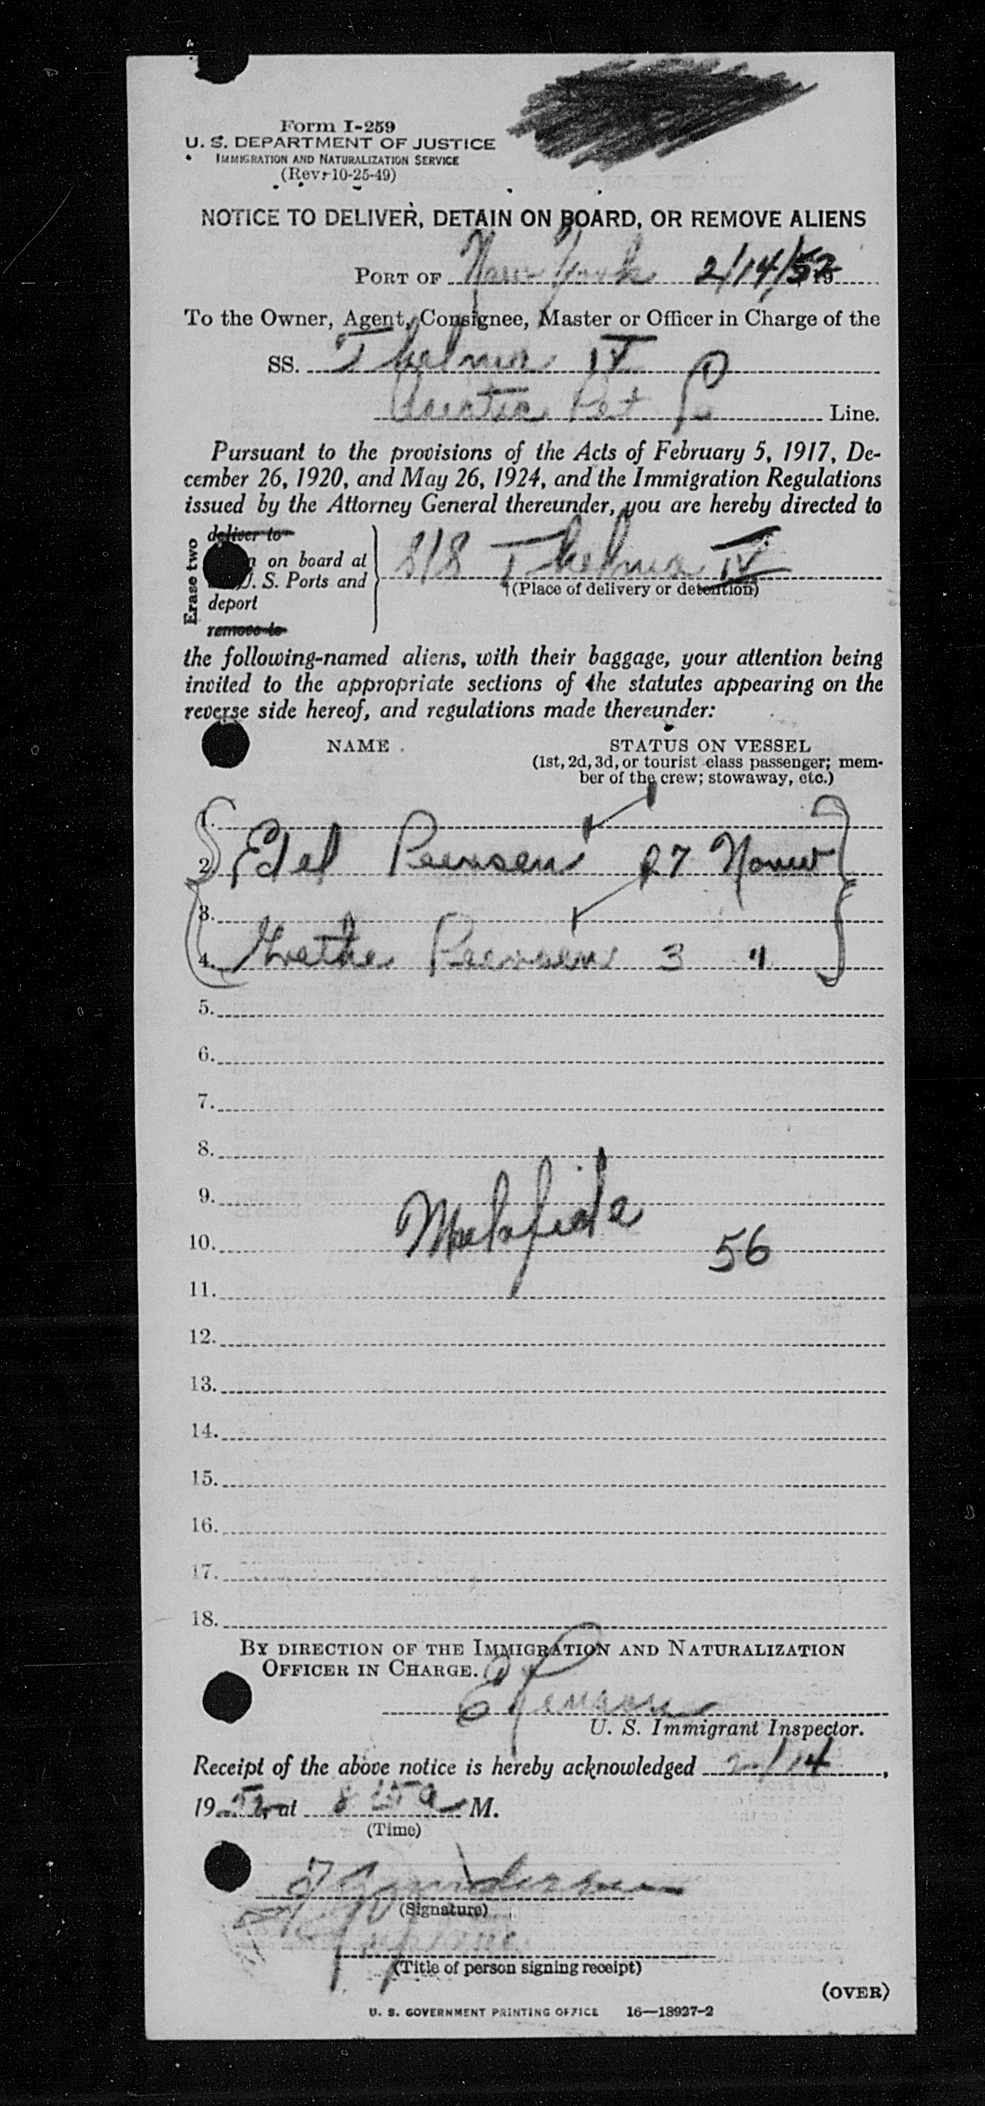 Form I-259
U. S. DEPARTMENT OF JUSTICE
IMMIGRATION AND NATURALIZATION SERVICE
(Rev. 10-25-49)
NOTICE TO DELIVER, DETAIN ON BOARD, OR REMOVE ALIENS
PORT OF New York 2/14/52 19
To the Owner, Agent, Consignee, Master or Officer in Charge of the
SS. Thelma IV
Line.
Pursuant to the provisions of the Acts of February 5, 1917, De-
cember 26, 1920, and May 26, 1924, and the Immigration Regulations
issued by the Attorney General thereunder, you are hereby directed to
Erase two
deliver to
on board at
U. S. Ports and
deport
remove to
S/S Thelma IV
(Place of delivery or detention)
the following-named aliens, with their baggage, your attention being
invited to the appropriate sections of the statutes appearing on the
reverse side hereof, and regulations made thereunder:
NAME STATUS ON VESSEL
(1st, 2d, 3d, or tourist class passenger; mem-
ber of the crew; stowaway, etc.)
1.
2. Edel Peersen 27 Norw
3.
4. Grethe Peersen 3 "
5.
6.
7.
8.
9. Malafide
10. 56
11.
12.
13.
14.
15.
16.
17.
18.
BY DIRECTION OF THE IMMIGRATION AND NATURALIZATION
OFFICER IN CHARGE.
U. S. Immigrant Inspector.
Receipt of the above notice is hereby acknowledged 2/14,
19 52, at 8 15 a M.
(Time)
(Signature)
(Title of person signing receipt)
(OVER)
U. S. GOVERNMENT PRINTING OFFICE 16—18927-2